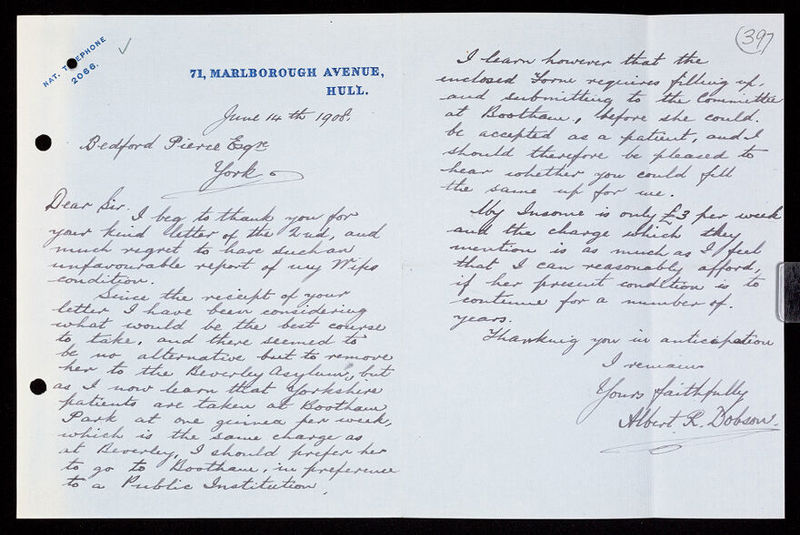 NAT. TELEPHONE
2066.
71, MARLBOROUGH AVENUE,
HULL.
June 14th 1908.
Bedford Pierce Esqre
York.
Dear Sir.
I beg to thank you for
your kind letter of the 2nd, and
much regret to have such an
unfavourable report of my Wifes
condition.
Since the receipt of your
letter I have been considering
what would be the best course
to take, and there seemed to
be no alternative but to remove
her to the Beverley Asylum, but
as I now learn that Yorkshire
patients are taken at Bootham
Park at one guinea per week,
which is the same charge as
at Beverley, I should prefer her
to go to Bootham, in preference
to a Public Institution.
397
I learn however that the
enclosed Form requires filling up,
and submitting to the Committee
at Bootham, before she could
be accepted as a patient, and I
should therefore be pleased to
hear whether you could fill
the same up for me.
My Income is only £3 per week
and the charge which they
mention is as much as I feel
that I can reasonably afford,
if her present condition is to
continue for a number of
years.
Thanking you in anticipation
I remain
Yours faithfully
Albert R. Dobson.